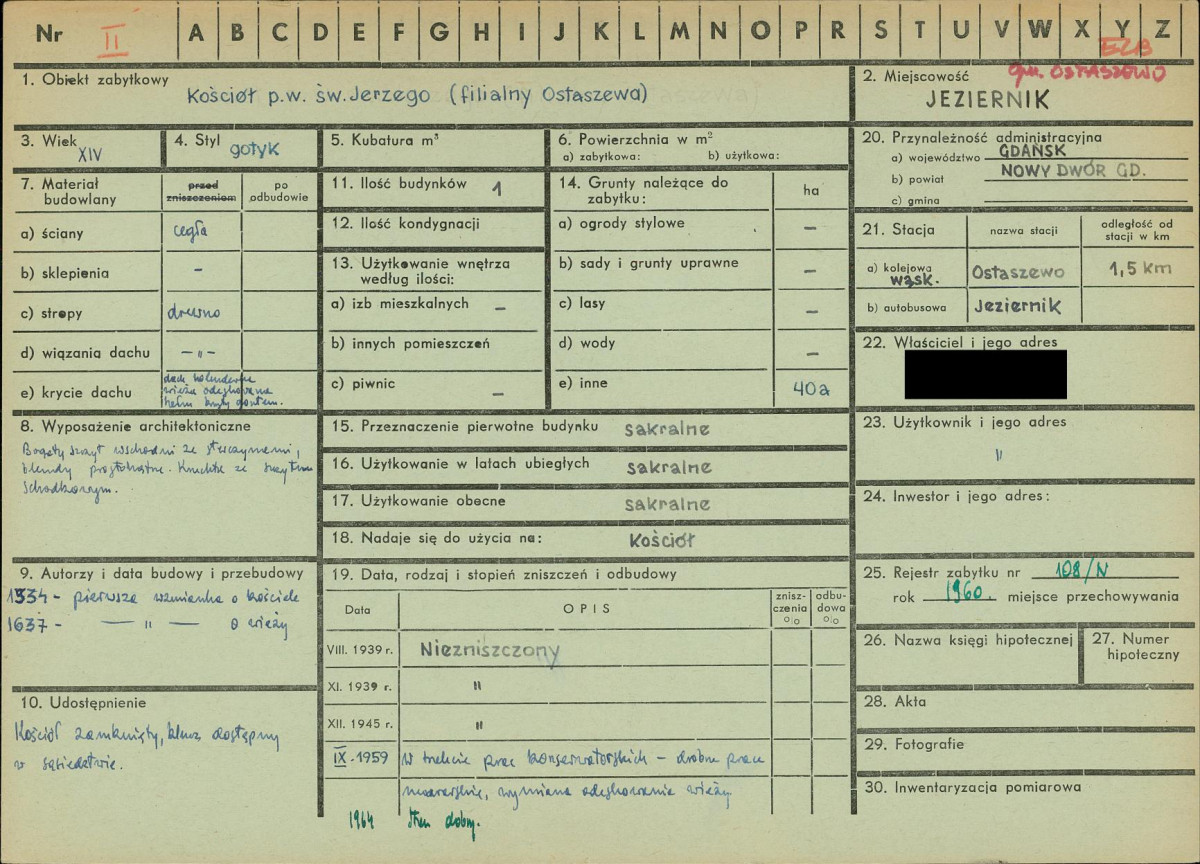 Nr II A B C D E F G H I J K L M N O P R S T U V W X Y Z
ELB
gm. OSTASZEWO
1. Obiekt zabytkowy
Kościół p.w. św. Jerzego (filialny Ostaszewa)
2. Miejscowość
JEZIERNIK
3. Wiek
XIV
4. Styl
gotyk
5. Kubatura m³
6. Powierzchnia w m²
a) zabytkowa: b) użytkowa:
20. Przynależność administracyjna
a) województwo GDAŃSK
b) powiat NOWY DWÓR GD.
c) gmina
7. Materiał budowlany
przed zniszczeniem
po odbudowie
a) ściany cegła
b) sklepienia -
c) stropy drewno
d) wiązania dachu — " —
e) krycie dachu
dach holenderka
wieża odeskowana
hełm kryty gontem.
11. Ilość budynków 1
12. Ilość kondygnacji
13. Użytkowanie wnętrza
według ilości:
a) izb mieszkalnych -
b) innych pomieszczeń
c) piwnic -
14. Grunty należące do
zabytku:
ha
a) ogrody stylowe -
b) sady i grunty uprawne -
c) lasy -
d) wody -
e) inne 40a
21. Stacja
nazwa stacji
odległość od
stacji w km
a) kolejowa
wąsk. Ostaszewo 1,5 km
b) autobusowa Jeziernik
22. Właściciel i jego adres
8. Wyposażenie architektoniczne
Bogaty szczyt wschodni ze sterczynami,
blendy prostokątne. Kruchta ze szczytem
schodkowym.
15. Przeznaczenie pierwotne budynku sakralne
16. Użytkowanie w latach ubiegłych sakralne
17. Użytkowanie obecne sakralne
18. Nadaje się do użycia na: Kościół
23. Użytkownik i jego adres
"
24. Inwestor i jego adres:
9. Autorzy i data budowy i przebudowy
1334 - pierwsza wzmianka o kościele
1637 - — " — o wieży
19. Data, rodzaj i stopień zniszczeń i odbudowy
Data
OPIS
znisz-
czenia
%
odbu-
dowa
%
VIII. 1939 r. Niezniszczony
XI. 1939 r. "
XII. 1945 r. "
IX. 1959 W trakcie prac konserwatorskich - drobne prace
murarskie, wymiana odeskowania wieży
1964 Stan dobry.
25. Rejestr zabytku nr 108/N
rok 1960. miejsce przechowywania
26. Nazwa księgi hipotecznej
27. Numer
hipoteczny
10. Udostępnienie
Kościół zamknięty, klucz dostępny
w sąsiedztwie.
28. Akta
29. Fotografie
30. Inwentaryzacja pomiarowa